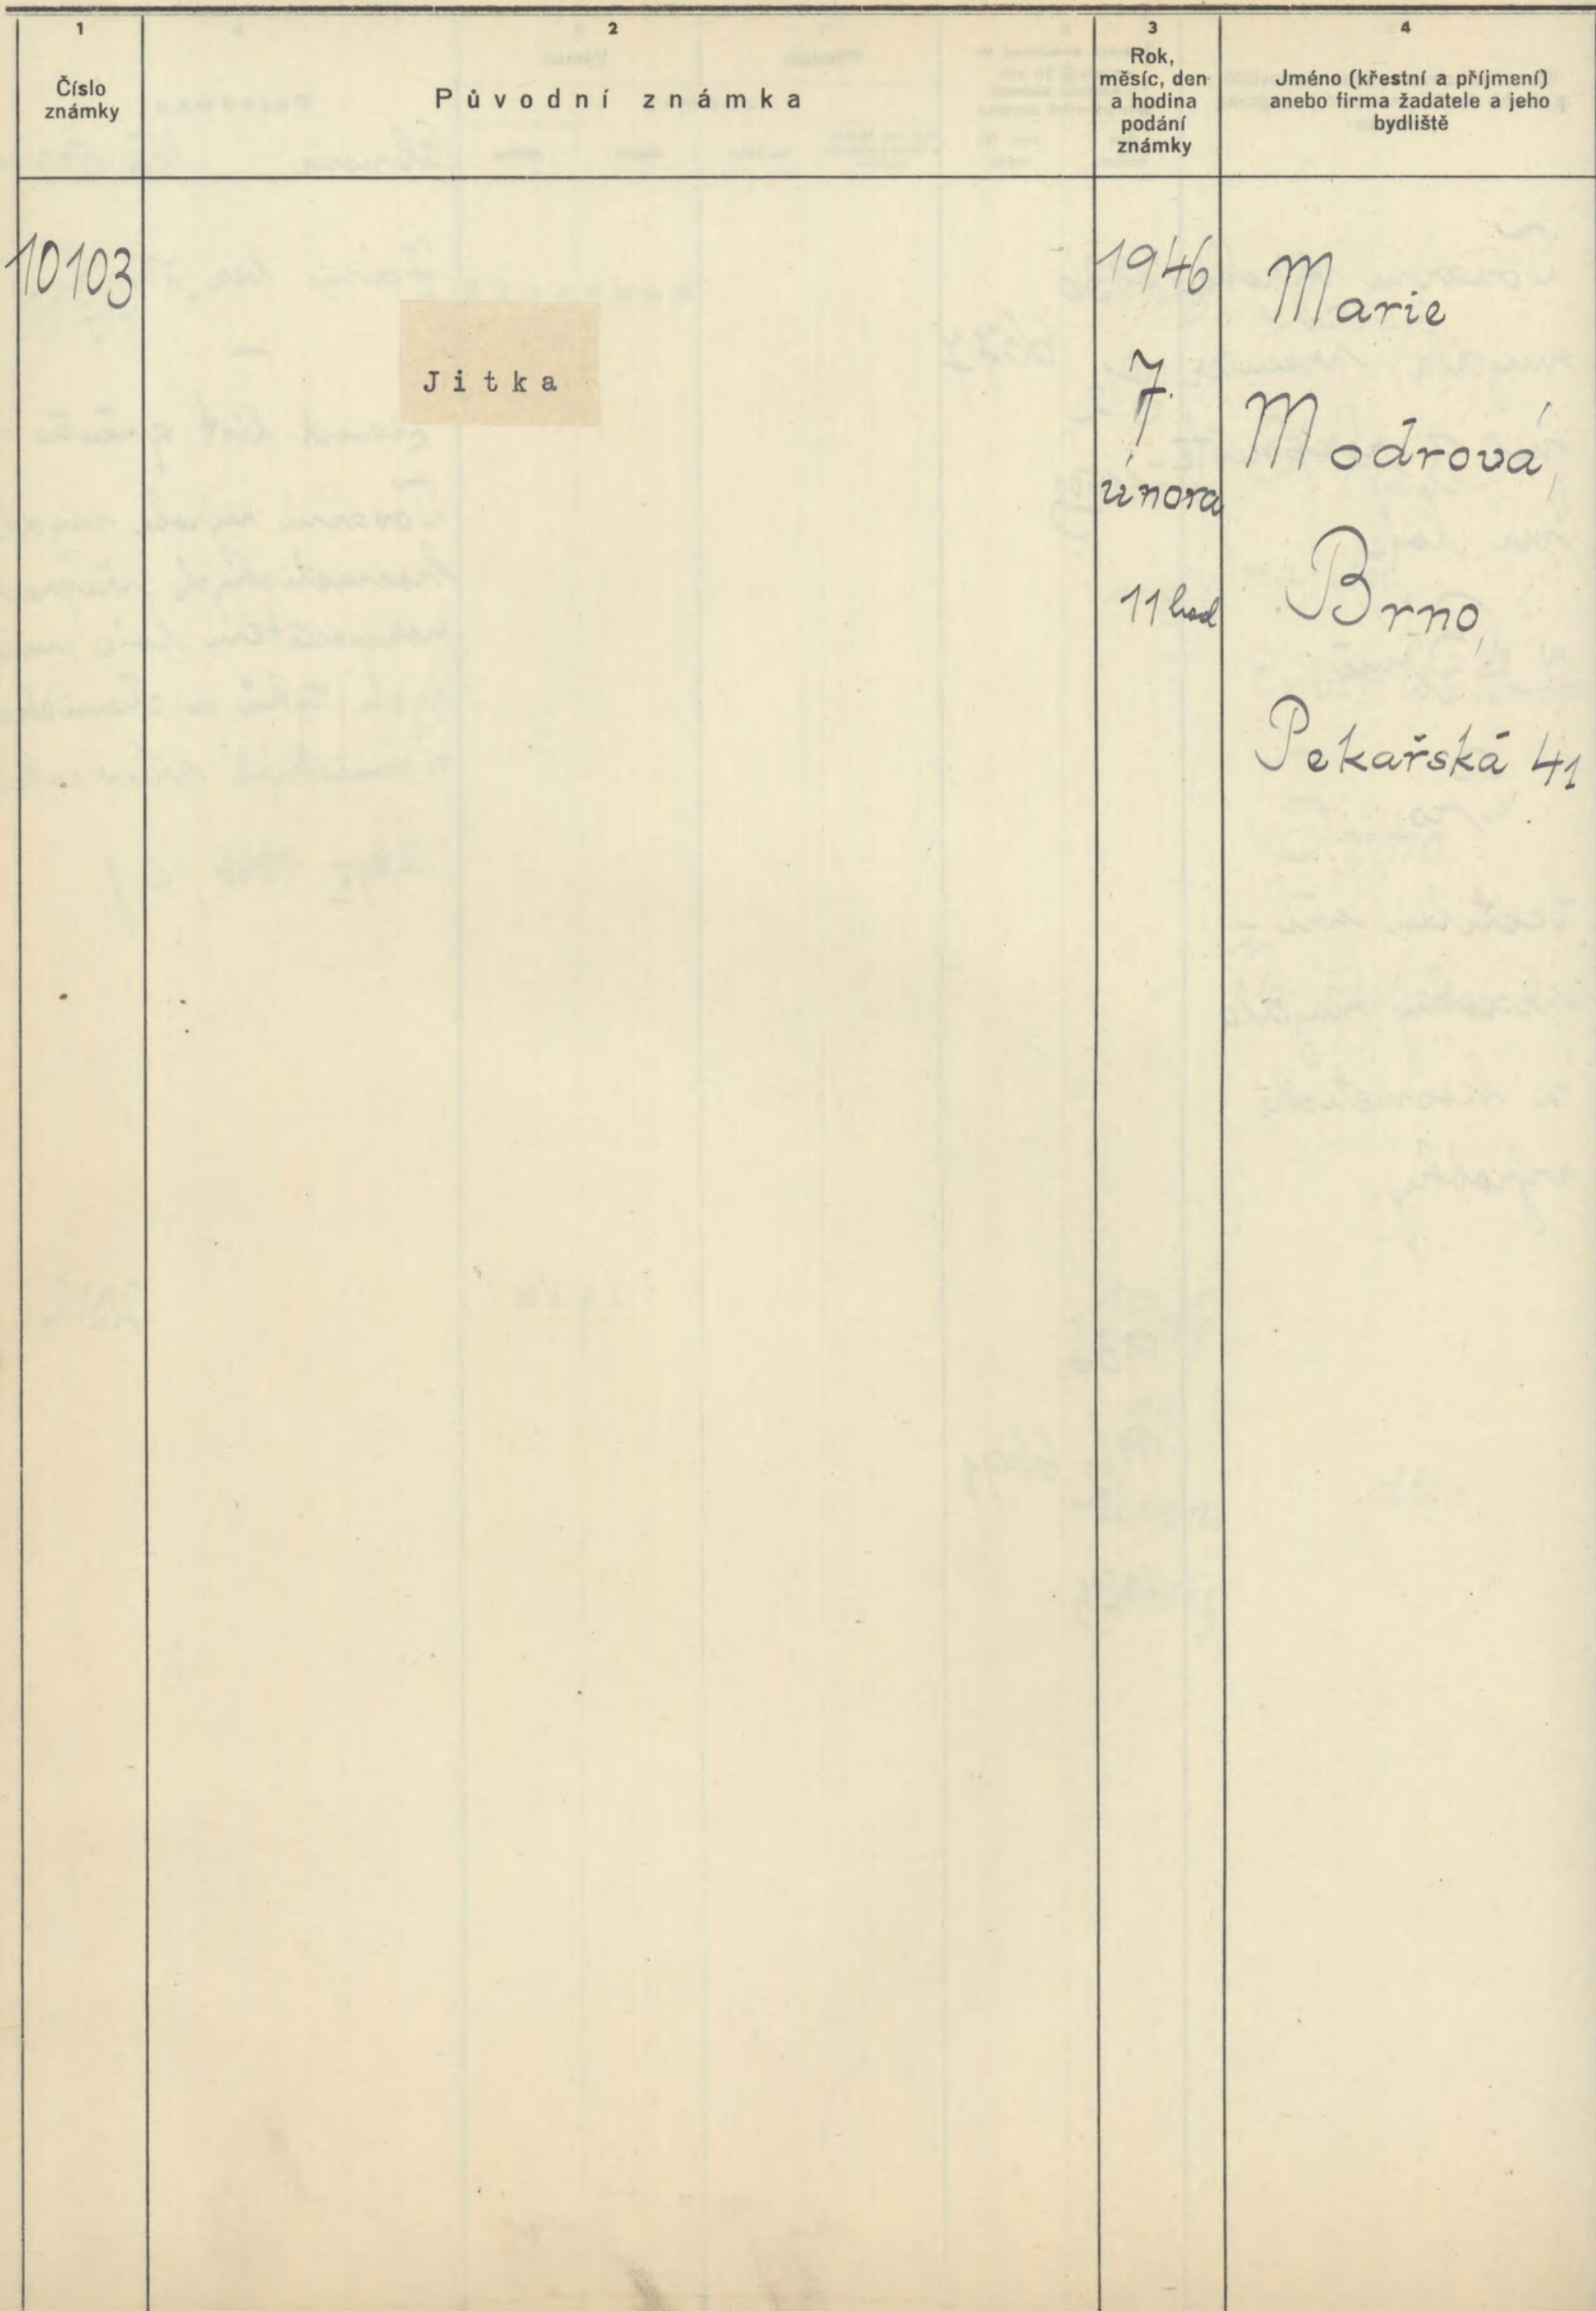 1
Číslo
známky
2
Původní známka
3
Rok,
měsíc, den
a hodina
podání
známky
4
Jméno (křestní a příjmení)
anebo firma žadatele a jeho
bydliště
10103
Jitka
1946
7.
února
11 hod
Marie
Modrová,
Brno,
Pekařská 41